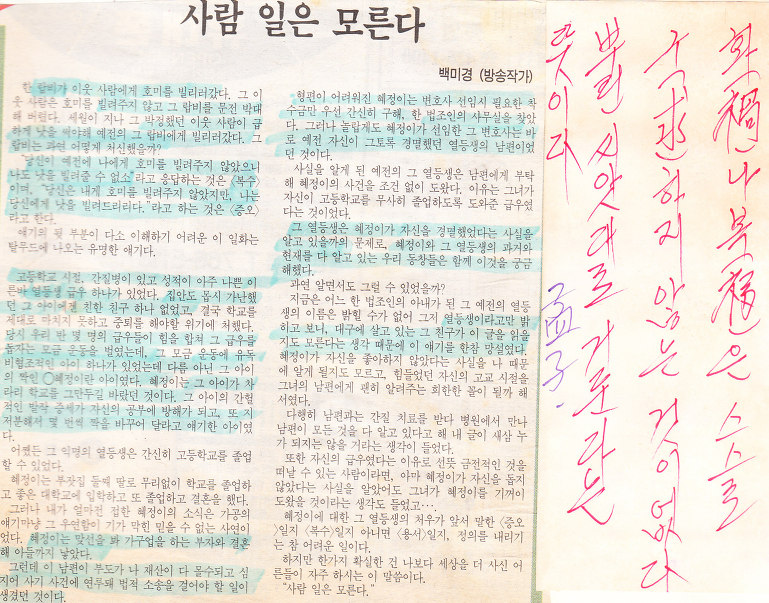 사람 일은 모른다
백미경 (방송작가)
한 랍비가 이웃 사람에게 호미를 빌리러갔다. 그 이
웃 사람은 호미를 빌려주지 않고 그 랍비를 문전 박대
해 버렸다. 세월이 지나 그 박정했던 이웃 사람이 급
하게 낫을 써야해 예전의 그 랍비에게 빌리러갔다. 그
랍비는 과연 어떻게 처신했을까?
"당신이 예전에 나에게 호미를 빌려주지 않았으니
나도 낫을 빌려줄 수 없소"라고 응답하는 것은 〈복수〉
이며, "당신은 내게 호미를 빌려주지 않았지만, 나는
당신에게 낫을 빌려드리리다."라고 하는 것은 〈증오〉
라고 한다.
얘기의 뒷 부분이 다소 이해하기 어려운 이 일화는
탈무드에 나오는 유명한 얘기다.
고등학교 시절, 간질병이 있고 성적이 아주 나쁜 이
른바 열등생 급우 하나가 있었다. 집안도 몹시 가난했
던 그 아이에겐 친한 친구 하나 없었고, 결국 학교를
제대로 마치지 못하고 중퇴를 해야할 위기에 처했다.
당시 우리 반 몇 명의 급우들이 힘을 합쳐 그 급우를
돕자는 모금 운동을 벌였는데, 그 모금 운동에 유독
비협조적인 아이 하나가 있었는데 다름 아닌 그 아이
의 짝인 ○혜정이란 아이였다. 혜정이는 그 아이가 차
라리 학교를 그만두길 바랐던 것이다. 그 아이의 간헐
적인 발작 증세가 자신의 공부에 방해가 되고, 또 지
저분해서 몇 번씩 짝을 바꾸어 달라고 얘기한 아이였
다.
어쨌든 그 익명의 열등생은 간신히 고등학교를 졸업
할 수 있었다.
혜정이는 부잣집 둘째 딸로 무리없이 학교를 졸업하
고 좋은 대학교에 입학하고 또 졸업하고 결혼을 했다.
그러나 내가 얼마전 접한 혜정이의 소식은 가공의
얘기마냥 그 우연함이 기가 막힌 믿을 수 없는 사연이
었다. 혜정이는 맞선을 봐 가구업을 하는 부자와 결혼
해 아들까지 낳았다.
그런데 이 남편이 부도가 나 재산이 다 몰수되고 심
지어 사기 사건에 연루돼 법적 소송을 걸어야 할 일이
생겼던 것이다.
형편이 어려워진 혜정이는 변호사 선임시 필요한 착
수금만 우선 간신히 구해, 한 법조인의 사무실을 찾았
다. 그러나 놀랍게도 혜정이가 선임한 그 변호사는 바
로 예전 자신이 그토록 경멸했던 열등생의 남편이었
던 것이다.
사실을 알게 된 예전의 그 열등생은 남편에게 부탁
해 혜정이의 사건을 조건 없이 도왔다. 이유는 그녀가
자신이 고등학교를 무사히 졸업하도록 도와준 급우였
다는 것이었다.
그 열등생은 혜정이가 자신을 경멸했었다는 사실을
알고 있을까의 문제로, 혜정이와 그 열등생의 과거와
현재를 다 알고 있는 우리 동창들은 함께 이것을 궁금
해했다.
과연 알면서도 그럴 수 있었을까?
지금은 어느 한 법조인의 아내가 된 그 예전의 열등
생의 이름은 밝힐 수가 없어 그저 열등생이라고만 밝
히고 보니, 대구에 살고 있는 그 친구가 이 글을 읽을
지도 모른다는 생각 때문에 이 얘기를 한참 망설였다.
혜정이가 자신을 좋아하지 않았다는 사실을 나 때문
에 알게 될지도 모르고, 힘들었던 자신의 고교 시절을
그녀의 남편에게 괜히 알려주는 희한한 꼴이 될까 해
서였다.
다행히 남편과는 간질 치료를 받다 병원에서 만나
남편이 모든 것을 다 알고 있다고 해 내 글이 새삼 누
가 되지는 않을 거라는 생각이 들었다.
또한 자신의 급우였다는 이유로 선뜻 금전적인 것을
떠날 수 있는 사람이라면, 아마 혜정이가 자신을 돕지
않았다는 사실을 알았어도 그녀가 혜정이를 기꺼이
도왔을 것이라는 생각도 들었고….
혜정이에 대한 그 열등생의 처우가 앞서 말한 〈증오〉
일지 〈복수〉일지 아니면 〈용서〉일지, 정의를 내리기
는 참 어려운 일이다.
하지만 한가지 확실한 건 나보다 세상을 더 사신 어
른들이 자주 하시는 이 말씀이다.
"사람 일은 모른다."
화禍나 복福은 스스로
구求하지 않는 것이 없다
뿌린 씨앗대로 거두라는
뜻이다
孟子.